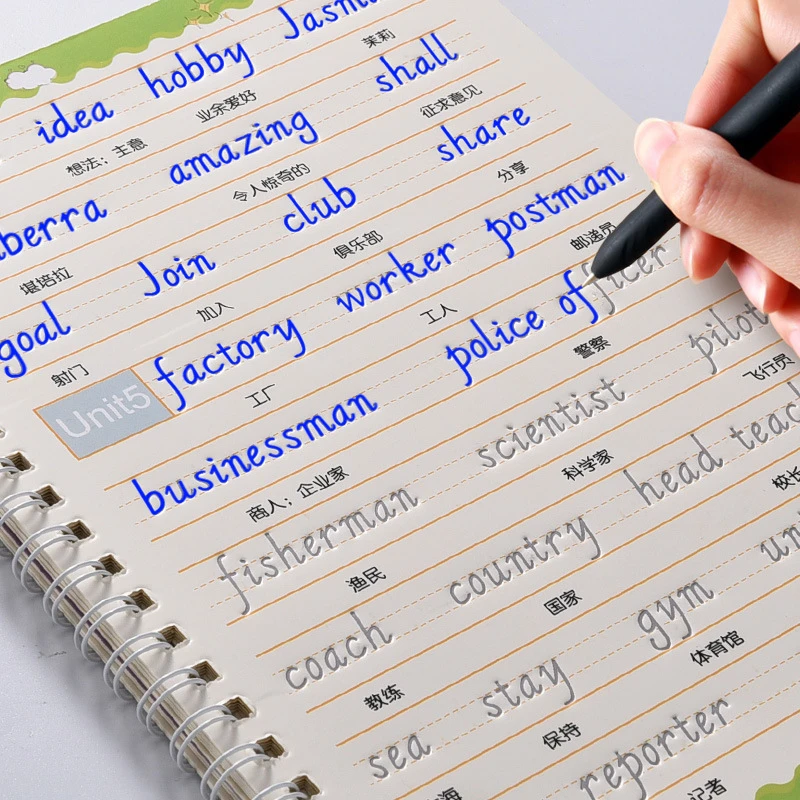 idea hobby
想法；主意 业余爱好 茉莉
amazing shall
堪培拉 令人惊奇的 征求意见
goal Join club share
射门 加入 俱乐部 分享
Unit5 factory worker postman
工厂 工人 邮递员
businessman police officer
商人；企业家 警察
fisherman scientist pilot
渔民 科学家 飞行员
coach country head
教练 国家 校长
sea stay gym
海 保持 体育馆
reporter
记者